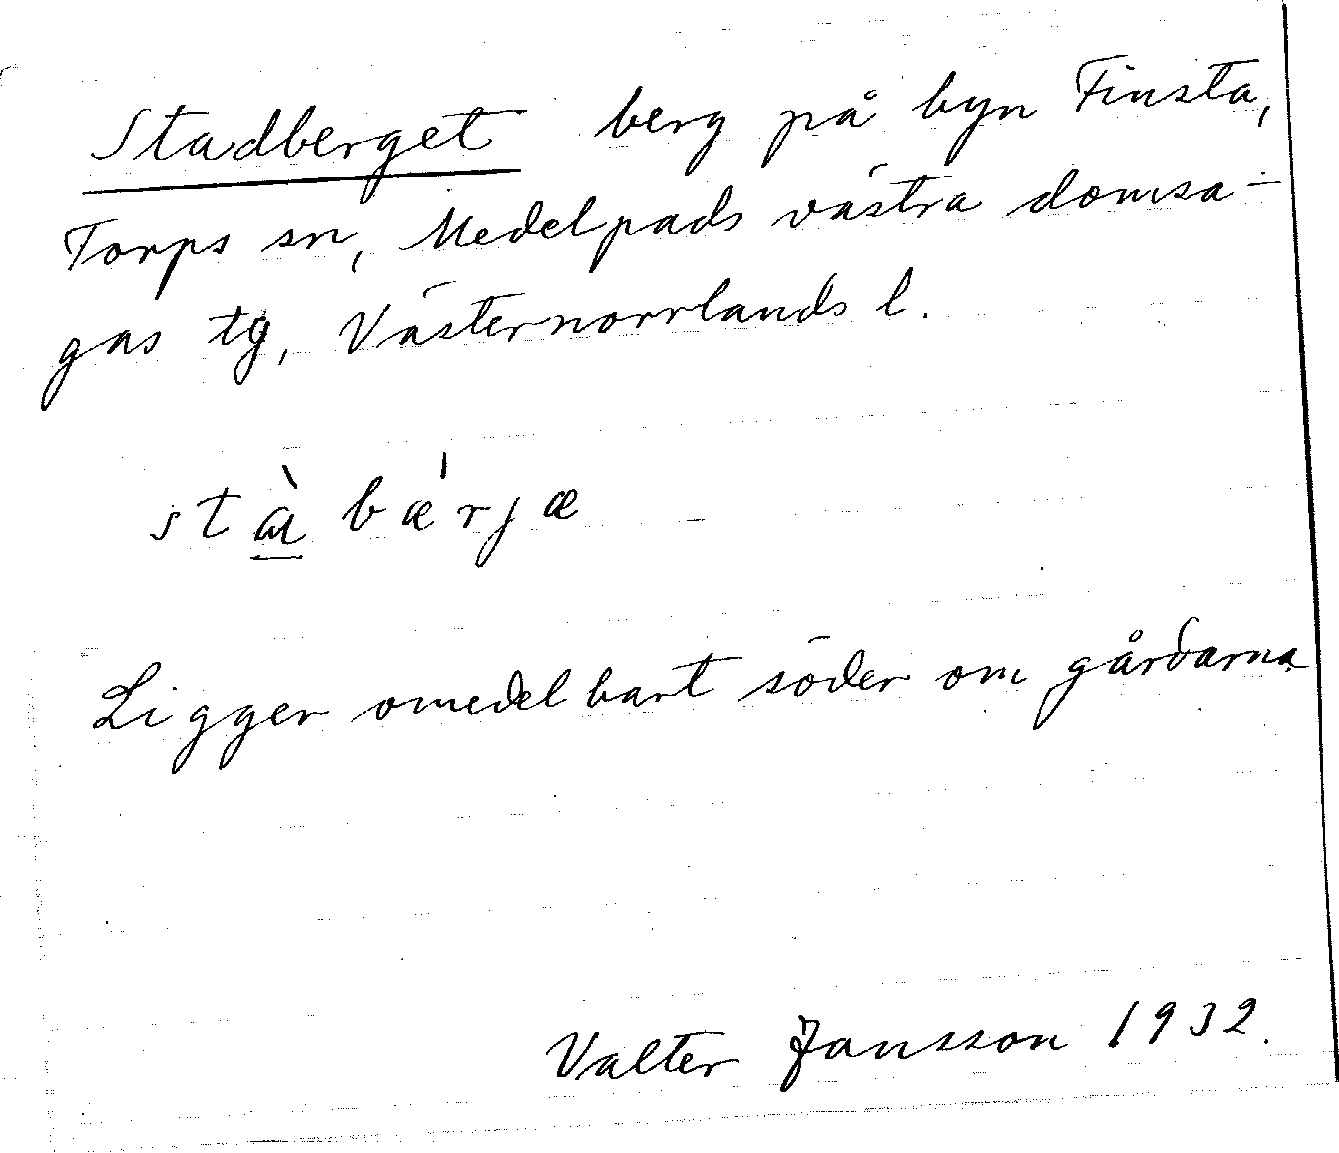 Stadberget berg på byn Finsta,
Torps sn, Medelpads västra domsa-
gas tg, Västernorrlands l.
stà bæ'rjæ
Ligger omedelbart söder om gårdarna
Valter Jansson 1932.